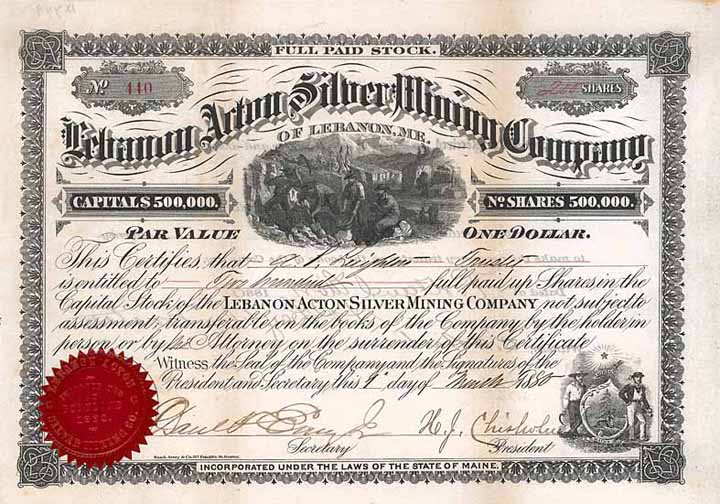 FULL PAID STOCK.
No 440
200 SHARES
Lebanon Acton Silver Mining Company
OF LEBANON, ME.
CAPITAL $ 500,000.
No SHARES 500,000.
PAR VALUE ONE DOLLAR.
This Certifies, that Trustee
is entitled to Two hundred full paid up Shares in the
Capital Stock of the LEBANON ACTON SILVER MINING COMPANY not subject to
assessment transferable on the books of the Company by the holder in
person or by his Attorney on the surrender of this Certificate
Witness the Seal of the Company and the Signatures of the
President and Secretary this day of March 1880
H. J. Chisholm
Secretary President
INCORPORATED UNDER THE LAWS OF THE STATE OF MAINE.